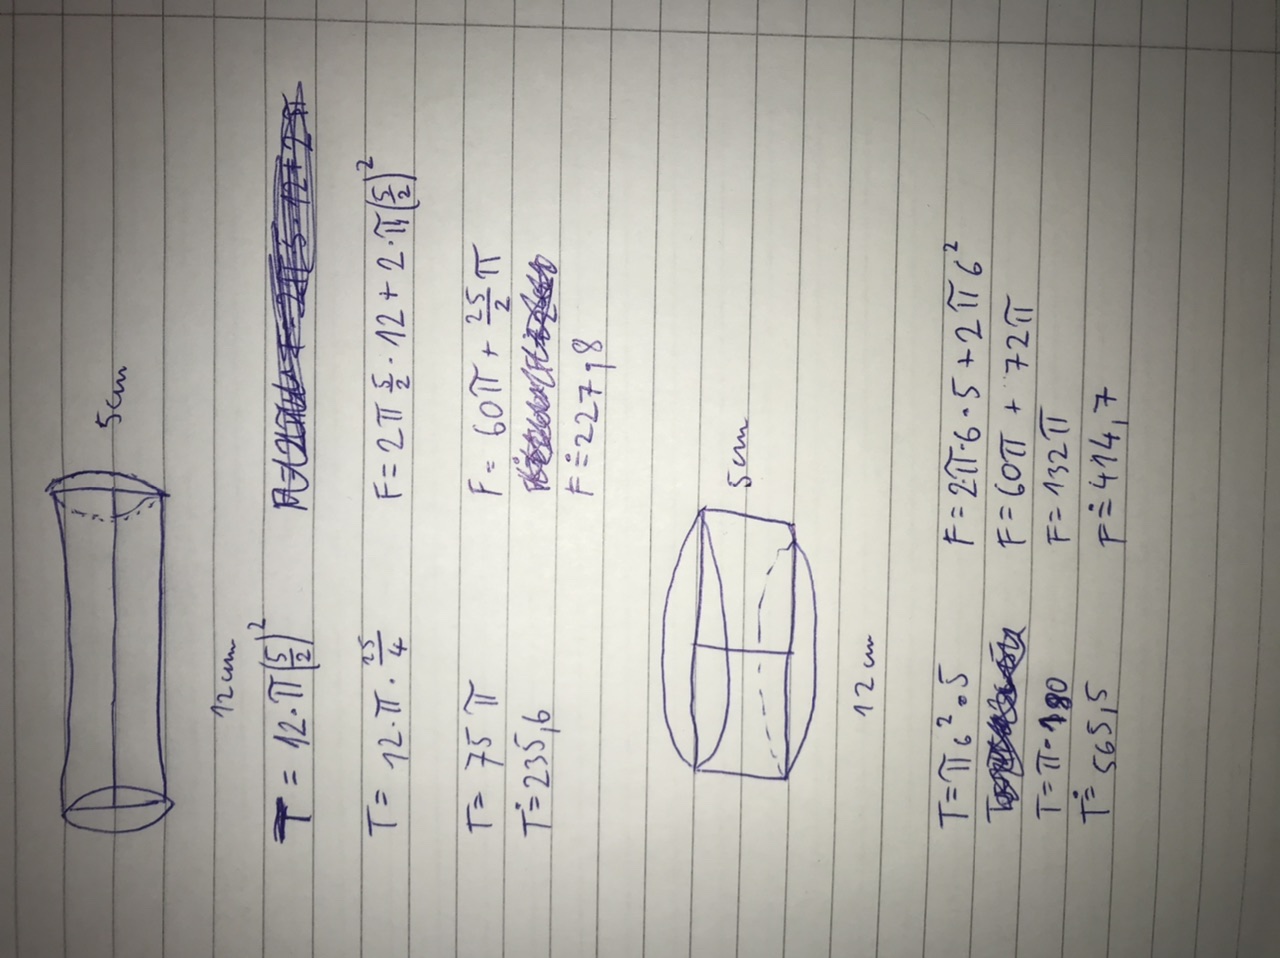 5cm
12cm
T = 12·π(5/2)²
T = 12·π·25/4
T = 75π
T ≐ 235,6
F = 2π 5/2 · 12 + 2·π(5/2)²
F = 60π + 25/2 π
F ≐ 227,8
5cm
12cm
T = π6²·5
T = π·180
T ≐ 565,5
F = 2π·6·5 + 2π6²
F = 60π + 72π
F = 132π
F ≐ 414,7